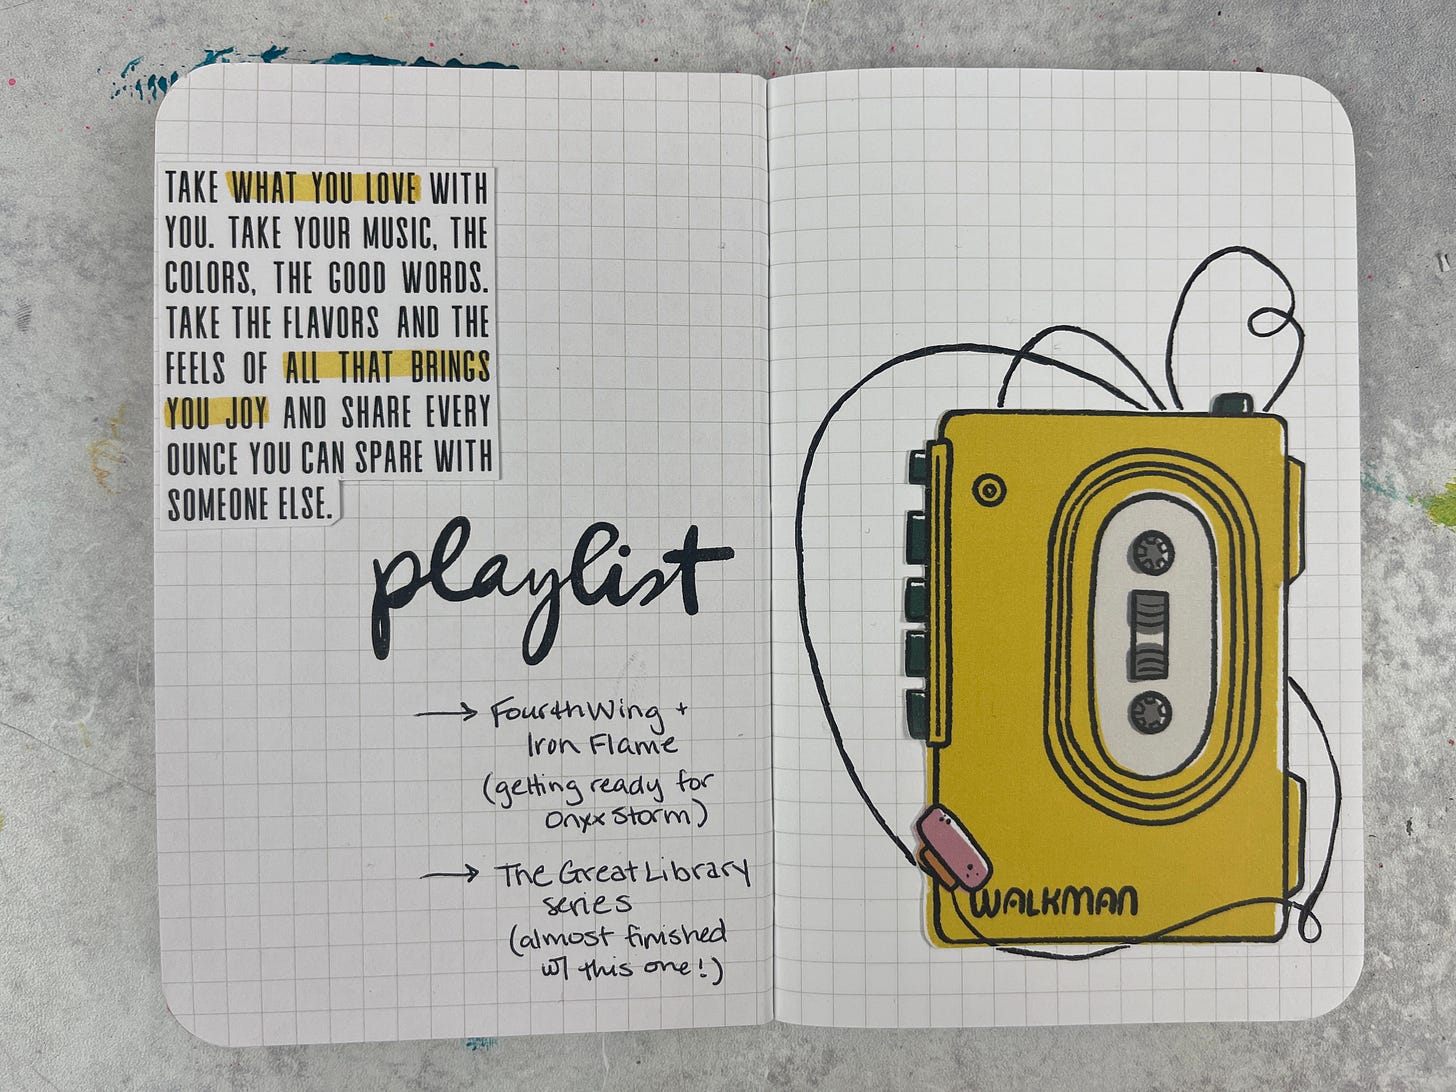 TAKE WHAT YOU LOVE WITH
YOU. TAKE YOUR MUSIC, THE
COLORS, THE GOOD WORDS.
TAKE THE FLAVORS AND THE
FEELS OF ALL THAT BRINGS
YOU JOY AND SHARE EVERY
OUNCE YOU CAN SPARE WITH
SOMEONE ELSE.
playlist
→ Fourth Wing +
Iron Flame
(getting ready for
Onyx Storm)
→ The Great Library
series
(almost finished
w/ this one!)
WALKMAN